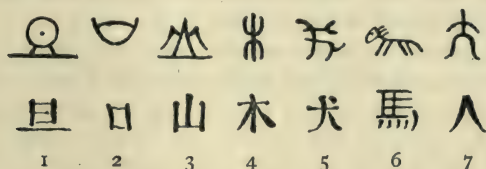 旦 口 山 木 犬 馬 人
1 2 3 4 5 6 7